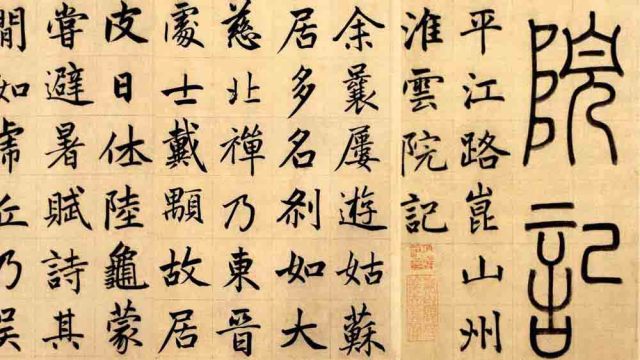 院記
平江路崑山州
淮雲院記
余曩屢遊姑蘇
居多名刹如大
慈北禪乃東晉
處士戴顒故居
皮日休陸龜蒙
嘗避暑賦詩其
間如虎丘乃吳